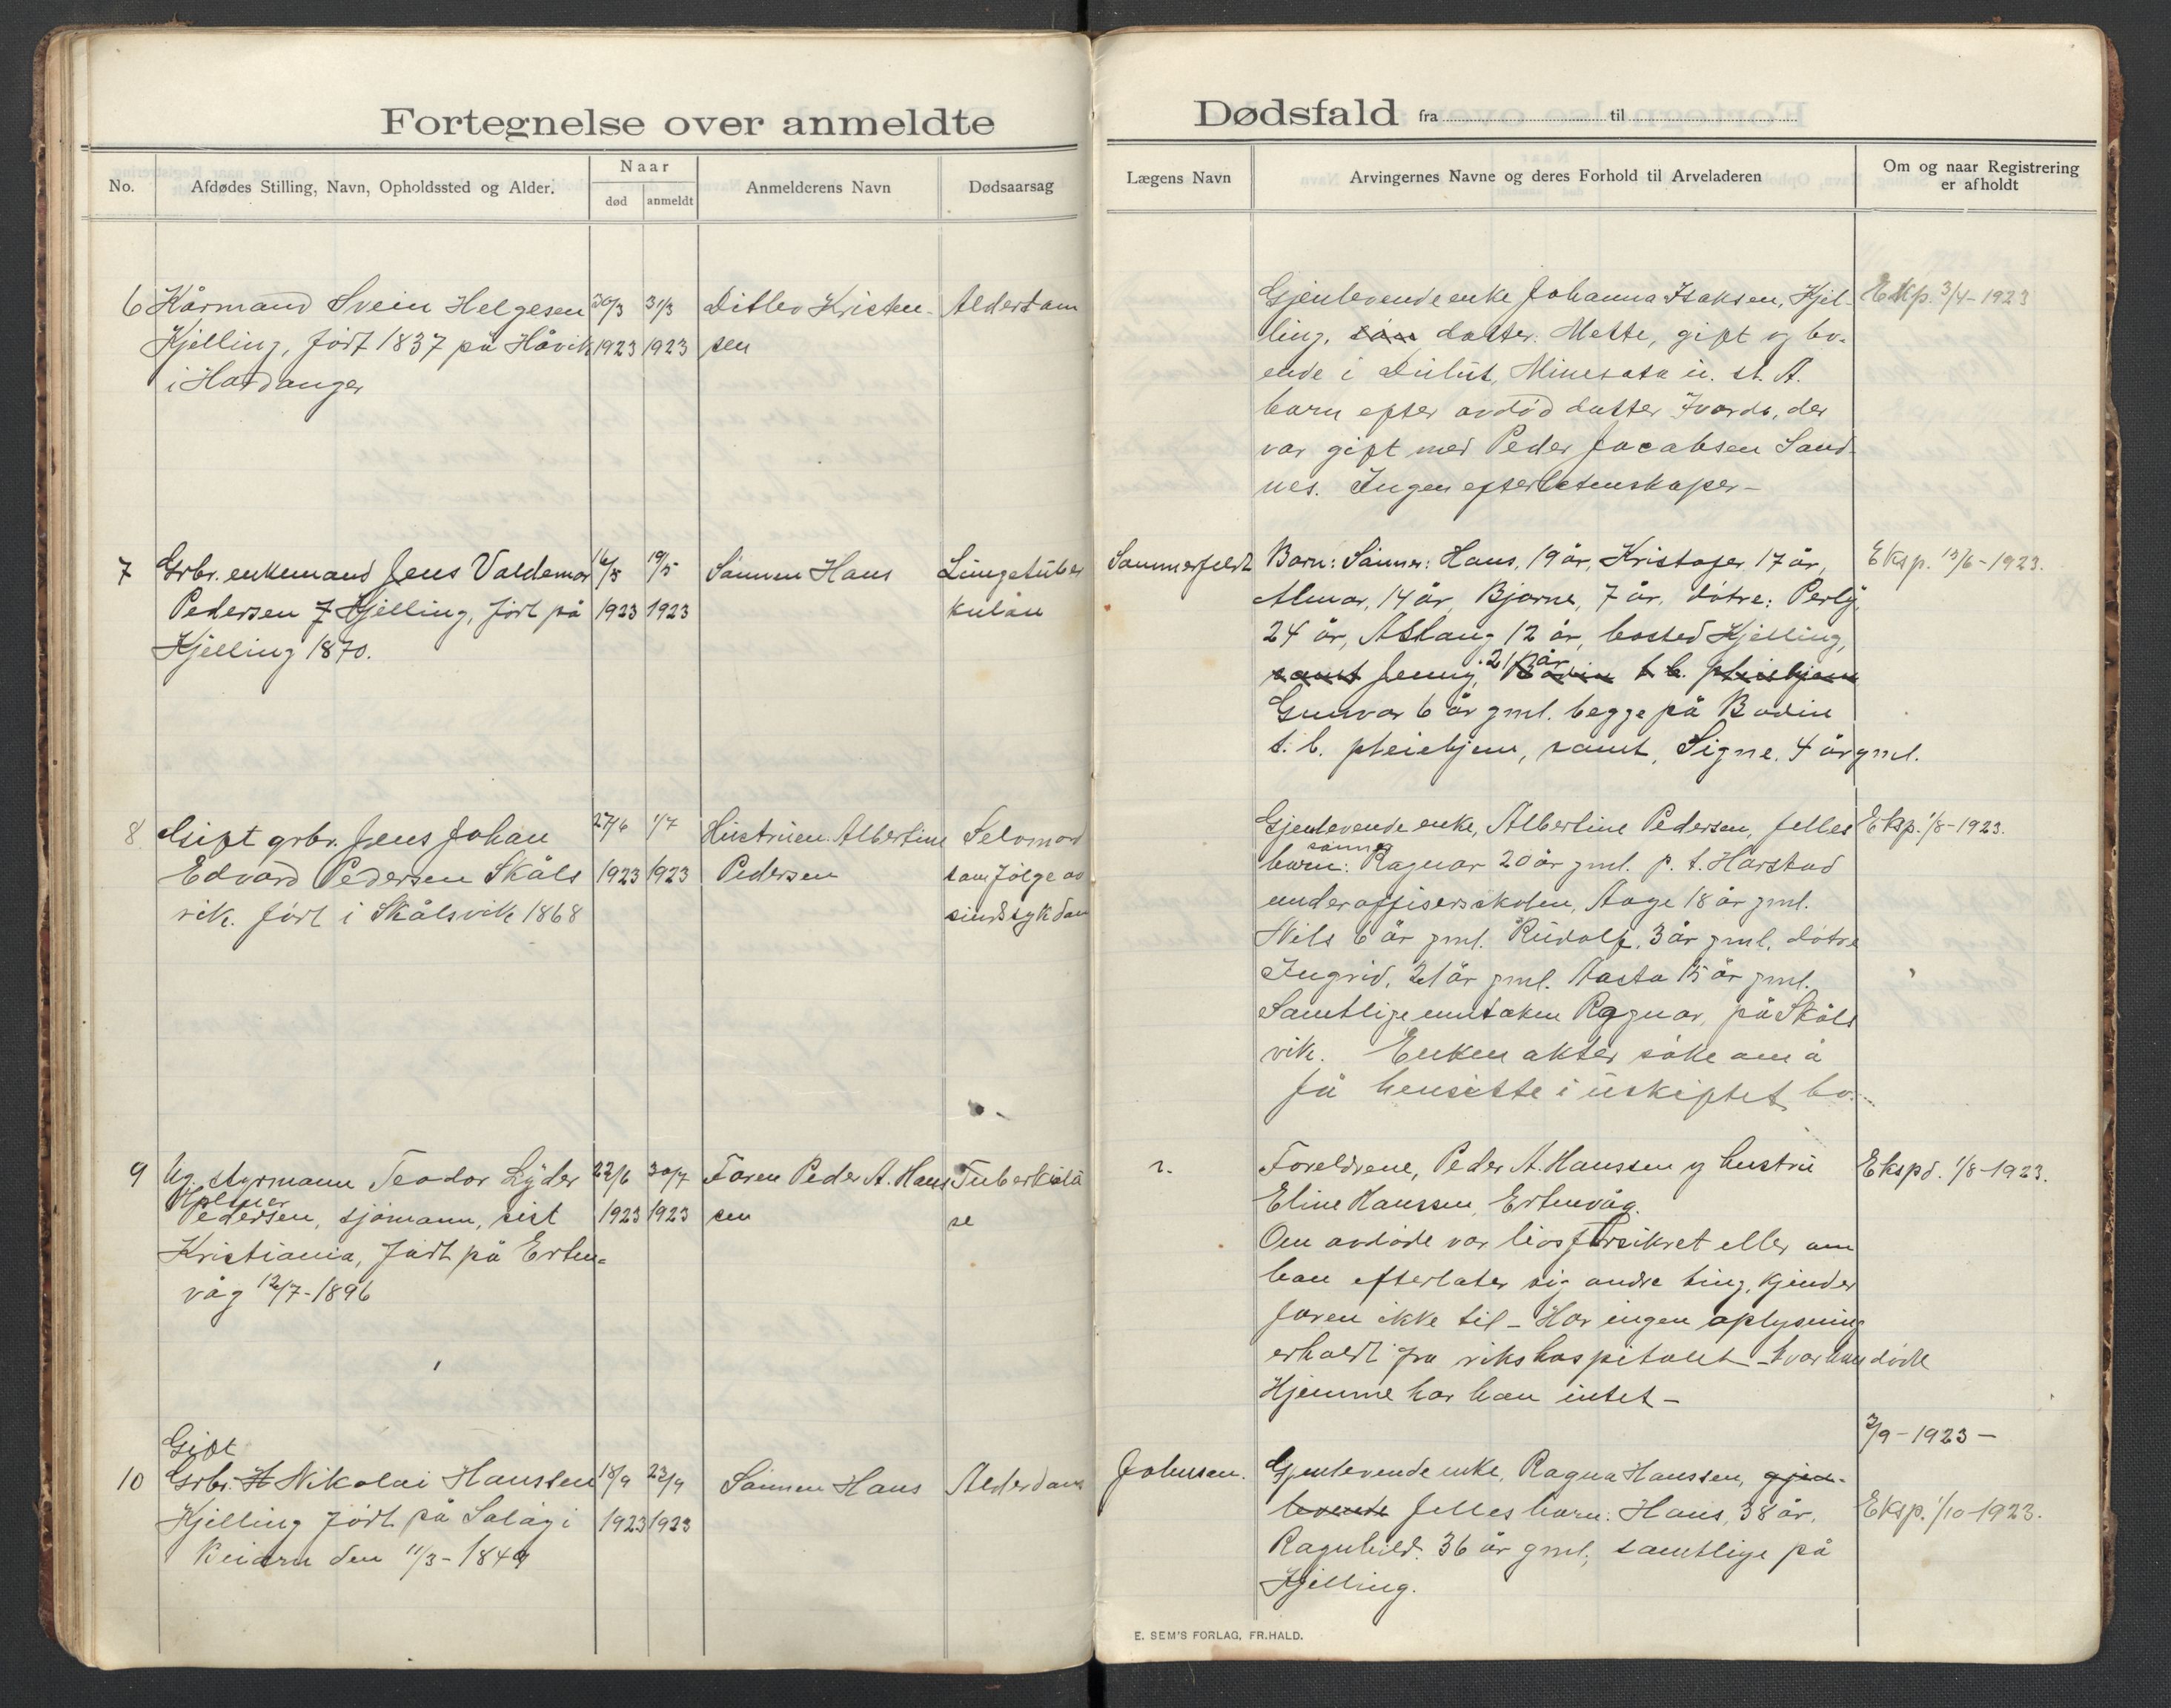 Fortegnelse over anmeldte
No.
Afdødes Stilling, Navn, Opholdssted og Alder.
Naar
død
anmeldt
Anmelderens Navn
Dødsaarsag
6
Kårmand Svein Helgesen
Kjelling, født 1837 på Håvik
i Hardanger
30/3
1923
31/3
1923
Ditlev Kristen-
sen
Alderdom
7
Grbr. enkemand Jens Valdemar
Pedersen Kjelling, født på
Kjelling 1870.
16/5
1923
19/5
1923
Sønnen Hans
Lungetuber
kuløse
8
Gift grbr. Jens Johan
Edvard Pedersen Skåls
vik. født i Skålsvik 1868
27/6
1923
1/7
1923
Hustruen Albertine
Pedersen
Selvmord
som følge av
sindssykdom
9
Ug. styrmann Teodor Lyder
Holmer
Pedersen, sjømann, sist
Kristiania, født på Erten-
våg 12/7-1896
22/6
1923
30/7
1923
Faren Peder A. Hans
sen
Tuberkulo
se
Gift
10
Grbr. H Nikolai Hanssen
Kjelling født på Solåg i
Beiarn den 11/3-1849
18/9
1923
23/9
1923
Sønnen Hans
Alderdom
Dødsfald fra til
Lægens Navn
Arvingernes Navne og deres Forhold til Arveladeren
Om og naar Registrering
er afholdt
Gjenlevende enke Johanna Isaksen, Kjel-
ling, søn datter. Mette, gift og bo-
ende i Dulut, Minesota u. st. A.
barn efter avdød datter Ivarda, der
var gift med Peder Jacobsen Sand-
nes. Ingen efterlatenskaper-
Eksp. 3/4-1923
Sommerfeldt
Barn: Sønner: Hans, 19 år, Kristofer 17 år,
Almar, 14 år, Bjarne, 7 år. døtre: Perly
24 år, Aslaug 12 år, bosted Kjelling,
samt Jenny, 21 år Bodin t.b. pleiehjem
Gunvor 6 år gml. begge på Bodin
t.b. pleiehjem, samt, Signe. 4 år gml.
Eksp. 13/6-1923.
Gjenlevende enke, Albertine Pedersen, felles
sønner
barn: Ragnar 20 år gml. p.t. Harstad
underoffisersskolen, Aage 18 år gml.
Nils 6 år gml. Rudolf, 3 år gml. døtre
Ingrid, 21 år gml. Aasta 15 år gml.
Samtlige unntaken Ragnar, på Skåls
vik. Enken akter søke om å
få hensitte i uskiptet bo.
Eksp. 1/8-1923.
?.
Foreldrene, Peder A. Hanssen og hustru
Eline Hanssen, Ertenvåg.
Om avdøde var livsforsikret eller om
han efterlater sig andre ting, kjender
faren ikke til - Har ingen oplysning
erholdt fra rikshospitalet - hvor han døde
Hjemme har han intet -
Ekspd. 1/8-1923.
Johnsen.
Gjenlevende enke, Ragna Hanssen, gjen-
levende felles barn: Hans, 38 år,
Ragnhild. 36 år gml; samtlige på
Kjelling.
2/9-1923-
Eksp. 1/10-1923.
E. SEM'S FORLAG, FR.HALD.